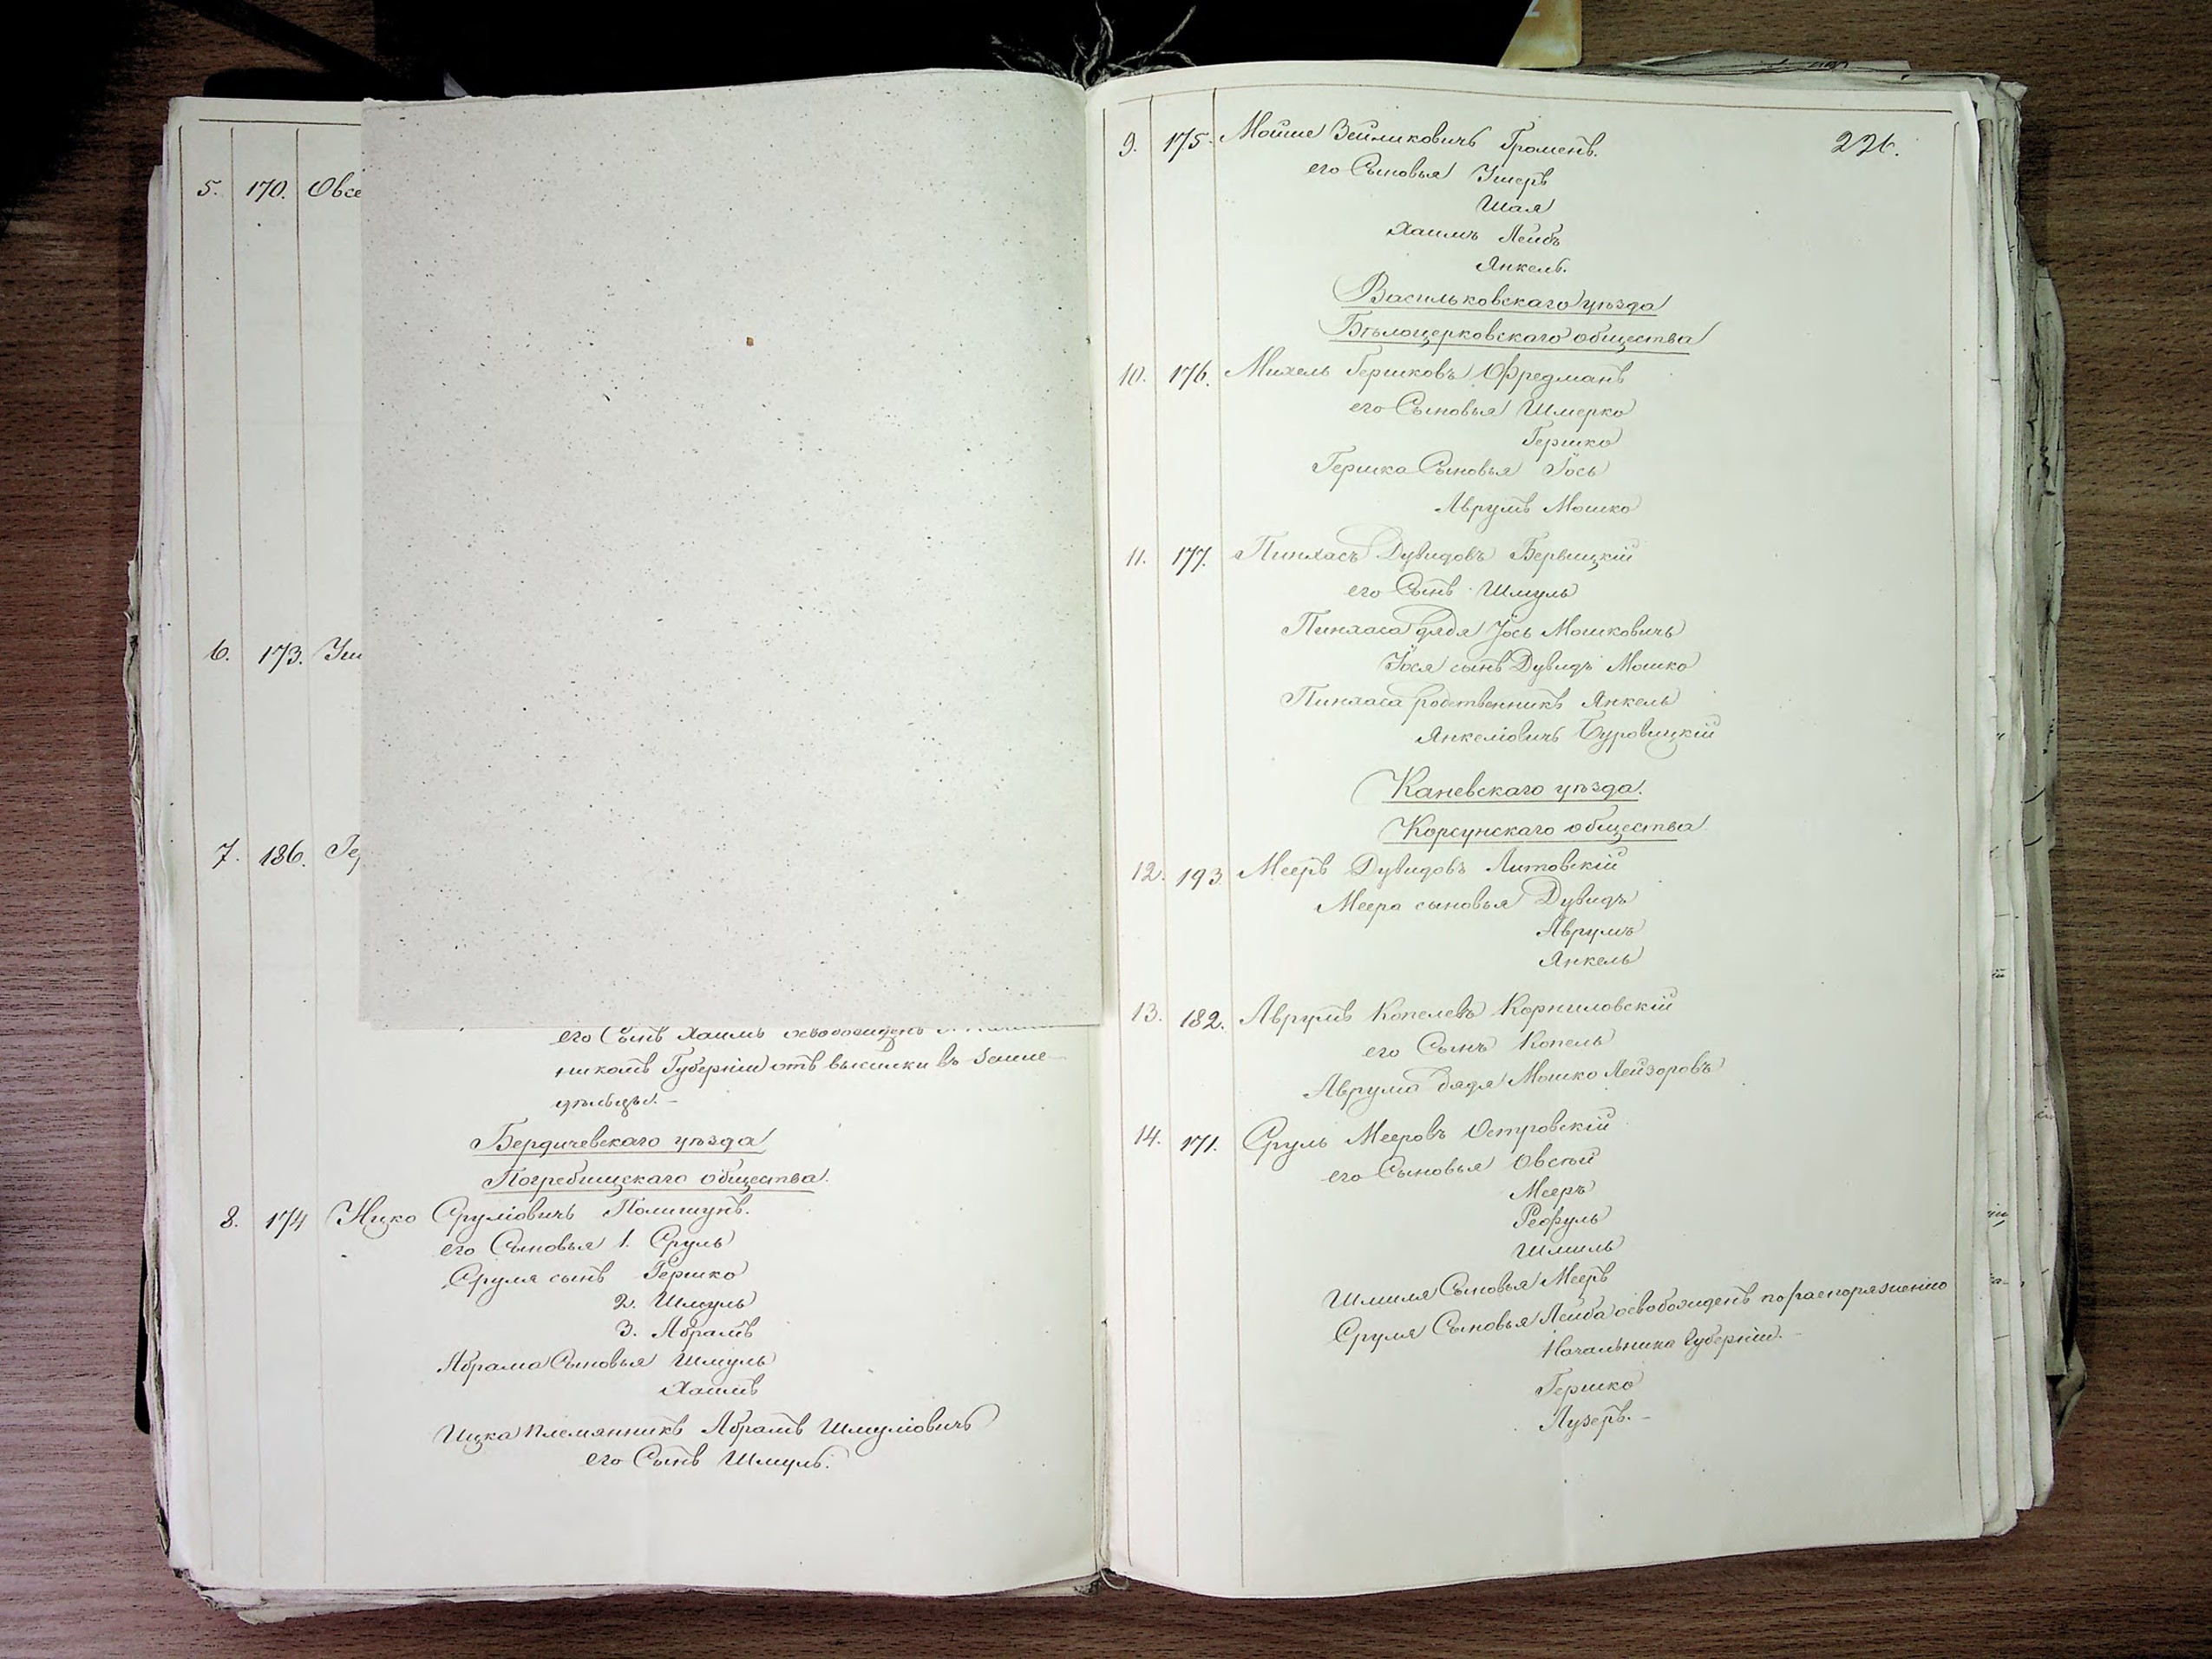 5. 170. Овсе
6. 173. Уш
7. 186. Ге
его Сынъ Хаимъ освобожденъ
никомъ Губерніи отъ высылки въ Земле-
дѣльцы. –
Бердичевскаго уѣзда
Погребищскаго общества.
8. 174 Ицко Сруліовичъ Полищукъ.
его Сыновья 1. Сруль
Сруля сынъ Гершко
2. Шмуль
3. Абрамъ
Абрама Сыновья Шмуль
Хаимъ
Ицка племянникъ Абрамъ Шмуліовичъ
его Сынъ Шмуль.
226.
9. 175. Мойше Зейликовичъ
его Сыновья Ушеръ
Шая
Хаимъ Лейбъ
Янкель.
Васильковскаго уѣзда
Бѣлоцерковскаго общества
10. 176. Михель Гершковъ Офредманъ
его Сыновья Шмерко
Гершко
Гершка Сыновья Іось
Аврумъ Мошко
11. 177. Пинхасъ Дувидовъ Бервицкій
его Сынъ Шмуль
Пинхаса дядя Іось Мошковичъ
Іося сынъ Дувидъ Мошко
Пинхаса родственникъ Янкель
Янкеліовичъ Буровицкій
Каневскаго уѣзда.
Корсунскаго общества
12. 193 Мееръ Дувидовъ Литовскій
Меера сыновья Дувидъ
Аврумъ
Янкель
13. 182. Аврумъ Копелевъ Корниловскій
его Сынъ Копель
Аврума дядя Мошко Лейзоровъ
14. 171. Сруль Мееровъ Островскій
его Сыновья Овсѣй
Мееръ
Рефуль
Шмиль
Шмиля Сыновья Мееръ
Сруля Сыновья Лейба освобожденъ по распоряженію
Начальника Губерніи. –
Гершко
Лузеръ. –